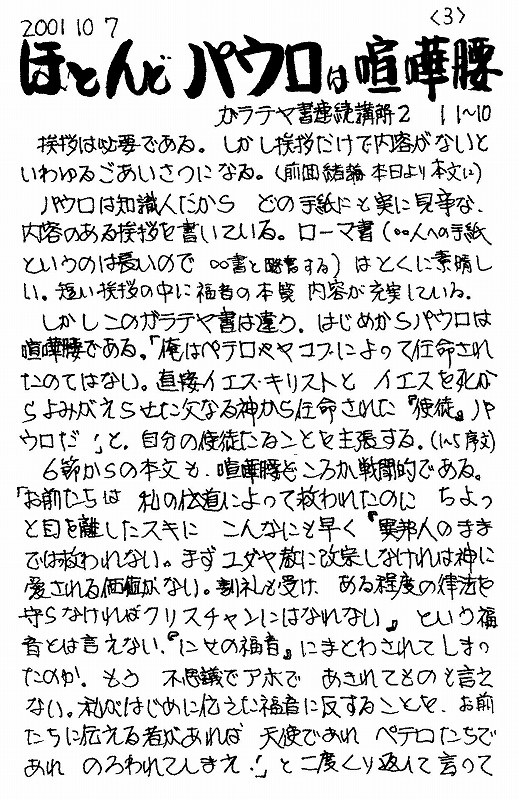 2001 10 7 〈3〉
ほとんど パウロは 喧嘩腰
ガラテヤ書連続講解2 1 1~10
挨拶は必要である。しかし挨拶だけで内容がないと
いわゆるごあいさつになる。(前回結論 本日より本文に)
パウロは知識人だから どの手紙にも実に見事な、
内容のある挨拶を書いている。ローマ書(○○人への手紙
というのは長いので ○○書と略書する)はとくに素晴し
い。短い挨拶の中に福音の本質 内容が充実している。
しかしこのガラテヤ書は違う。はじめからパウロは
喧嘩腰である。「俺はペテロやヤコブによって任命され
たのではない。直接イエス・キリストと イエスを死か
らよみがえらせた父なる神から任命された『使徒』パ
ウロだ!」と、自分の使徒たることを主張する。(1~5 序文)
6節からの本文も、喧嘩腰どころか戦闘的である。
「お前たちは 私の伝道によって救われたのに ちょっ
と目を離したスキに こんなにも早く『異邦人のまま
では救われない。まずユダヤ教に改宗しなければ神に
愛される価値がない。割礼も受け、ある程度の律法を
守らなければクリスチャンにはなれない』という福
音とは言えない、『にせの福音』にまどわされてしまっ
たのか。もう 不思議でアホで あきれてものも言え
ない。私がはじめに伝えた福音に反することを、お前
たちに伝える者があれば 天使であれ ペテロたちで
あれ のろわれてしまえ!」と二度くり返して言って